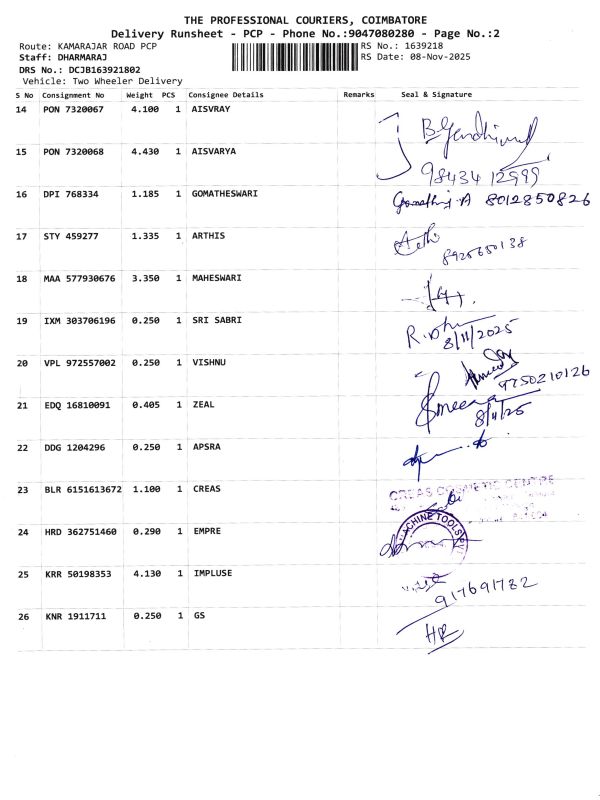 THE PROFESSIONAL COURIERS, COIMBATORE
Delivery Runsheet - PCP - Phone No.:9047080280 - Page No.:2
Route: KAMARAJAR ROAD PCP RS No.: 1639218
Staff: DHARMARAJ RS Date: 08-Nov-2025
DRS No.: DCJB163921802
Vehicle: Two Wheeler Delivery
S No Consignment No Weight PCS Consignee Details Remarks Seal & Signature
14 PON 7320067 4.100 1 AISVRAY
15 PON 7320068 4.430 1 AISVARYA
98434 12999
16 DPI 768334 1.185 1 GOMATHESWARI 8012850826
17 STY 459277 1.335 1 ARTHIS
8925650138
18 MAA 577930676 3.350 1 MAHESWARI
19 IXM 303706196 0.250 1 SRI SABRI
8/11/2025
20 VPL 972557002 0.250 1 VISHNU
9750210126
21 EDQ 16810091 0.405 1 ZEAL Smeena
8/11/25
22 DDG 1204296 0.250 1 APSRA
23 BLR 6151613672 1.100 1 CREAS CREAS COSMETIC CENTRE
24 HRD 362751460 0.290 1 EMPRE MACHINE TOOLS PVT
25 KRR 50198353 4.130 1 IMPLUSE
917691782
26 KNR 1911711 0.250 1 GS